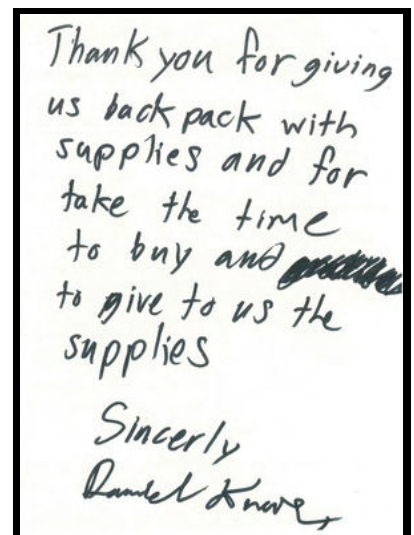 Thank you for giving
us back pack with
supplies and for
take the time
to buy and
to give to us the
supplies
Sincerly